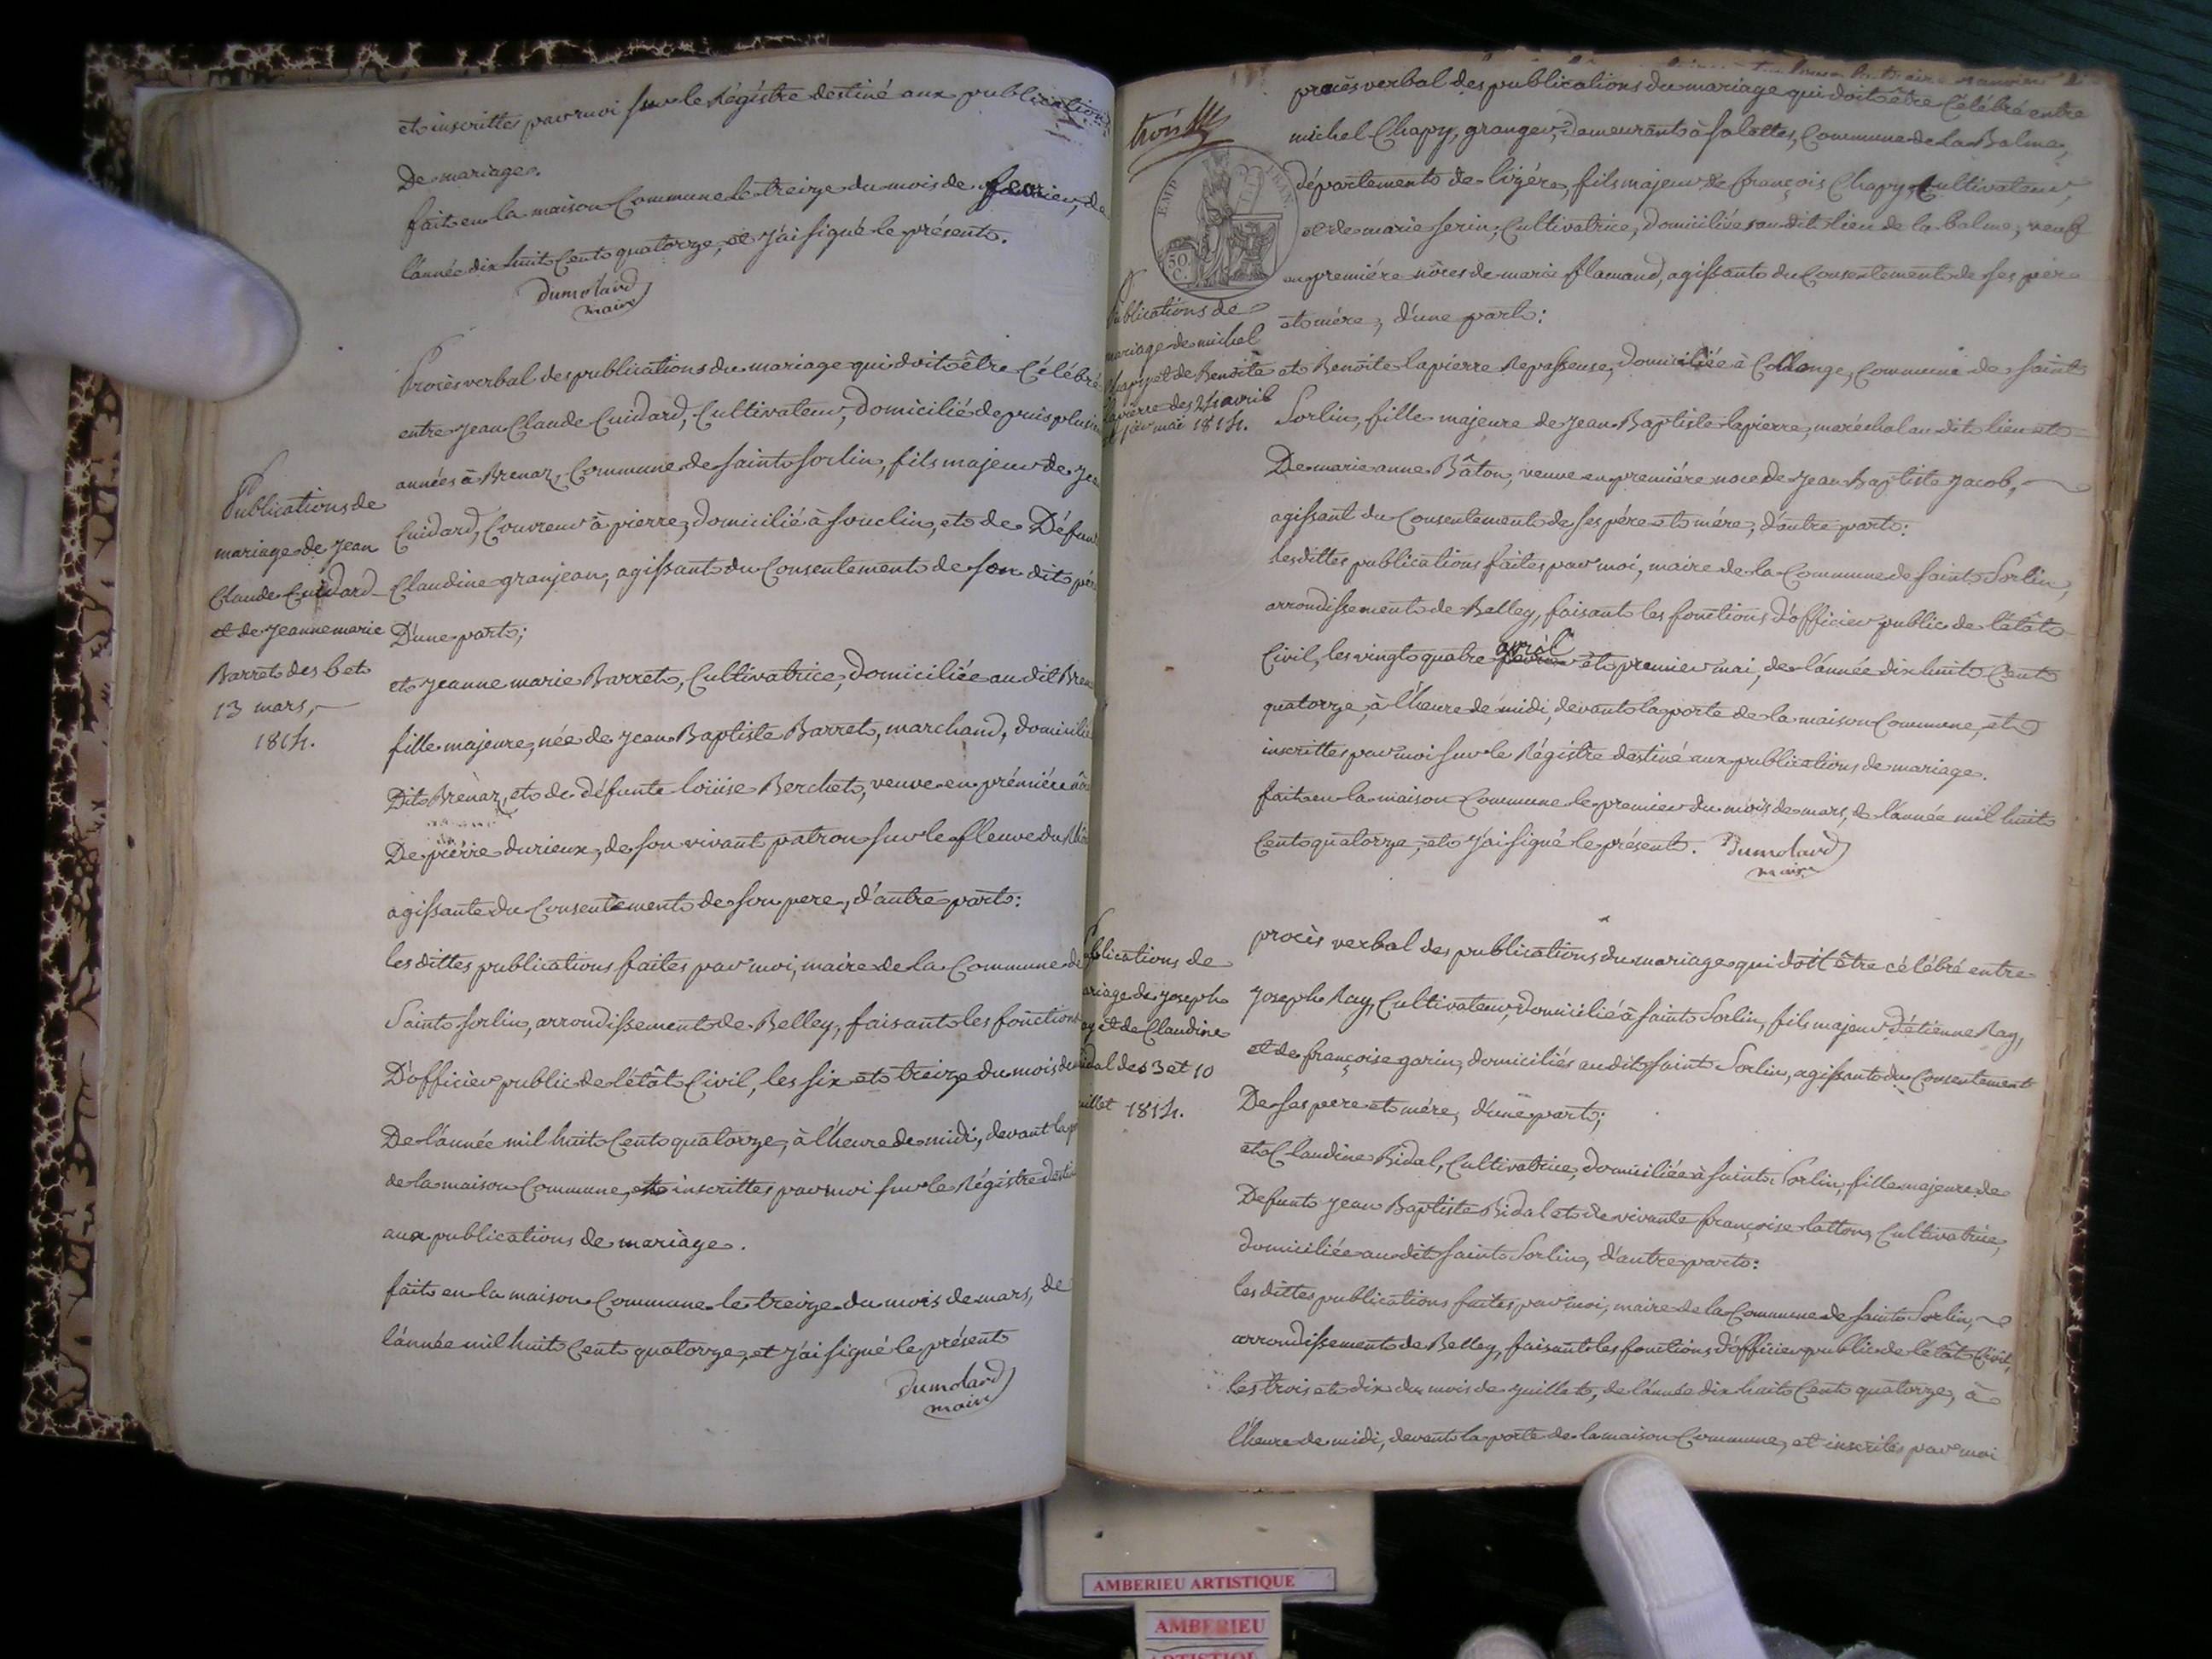 et inscrittes par moi sur le Régistre destiné aux publications
De mariage.
fait en la maison Commune le treize du mois de fevrier, de
l'année dix huit Cent quatorze, et j'ai signé le présent.
Dumolard
maire
Procès verbal des publications du mariage qui doit être Célébré
entre Jean Claude Cuidard, Cultivateur, Domicilié depuis plusieurs
années à Brenaz, Commune de saint Sorlin, fils majeur de Jean
Cuidard, Couvreur à pierre, domicilié à Souclin, et de Défunte
Claudine granjean, agissant du Consentement de son dit père
D'une part;
et Jeanne marie Barret, Cultivatrice, Domiciliée au dit Brenaz
fille majeure, née de Jean Baptiste Barret, marchand, domicilié
Dit Brènaz, et de défunte loüise Berchet, veuve en prémiére
De pierre durieux, de son vivant patron sur le fleuve du
agissante du Consentement de son pere, d'autre part:
les dittes publications faites par moi, maire de la Commune de
Saint Sorlin, arrondissement de Belley, faisant les fonctions
D'officier public de l'étât Civil, les six et treize du mois de
De l'année mil huit Cent quatorze, à l'heure de midi, devant la
de la maison Commune, et inscrittes par moi sur le Régistre destiné
aux publications de mariage.
fait en la maison Commune le treize du mois de mars, de
l'année mil huit Cent quatorze, et j'ai signé le présent
Dumolard
maire
Publications de
mariage de Jean
Claude Cuidard
et de Jeanne marie
Barret des 6 et
13 mars,
1814.
trois
EMP. FRAN.
50 C.
procès verbal des publications du mariage qui doit être Célébré entre
michel Chapy, granger, Demeurant à Salettes, Commune de la Balme,
département de l'izére, fils majeur de françois Chapy, Cultivateur,
et de marie Serin, Cultivatrice, Domiciliés au dit lieu de la balme, veuf
en premiére nôces de marie flamand, agissant du Consentement de ses père
et mére, d'une part:
et Benoite lapierre Repasseuse, domiciliée à Collonge, Commune de saint
Sorlin, fille majeure de Jean Baptiste lapierre, maréchal au dit lieu et
De marie anne Bâton, veuve en premiére noce de Jean Baptiste Jacob,
agissant du Consentement de ses pére et mére, d'autre part:
les dittes publications faites par moi, maire de la Commune de saint Sorlin,
arrondissement de Belley, faisant les fonctions d'officier public de l'étât
Civil, les vingt quatre avril et premier mai, de l'année dix huit Cent
quatorze, à l'heure de midi, devant la porte de la maison Commune, et
inscrittes par moi sur le Régistre destiné aux publications de mariage.
fait en la maison Commune le premier du mois de mars, de l'année mil huit
Cent quatorze, et j'ai signé le présent. Dumolard
maire
Publications de
mariage de michel
Chapy et de Benoite
lapierre des 24 avril
et 1er mai 1814.
procès verbal des publications du mariage qui doit être célébré entre
Joseph Ray, Cultivateur, domicilié à saint Sorlin, fils majeur d'étienne Ray,
et de françoise garin, domiciliés au dit saint Sorlin, agissant du Consentement
De ses pere et mére, d'une part;
et Claudine Bidal, Cultivatrice, domiciliée à saint Sorlin, fille majeure de
Defunt Jean Baptiste Bidal et de vivante françoise latton, Cultivatrice,
domiciliée au dit saint Sorlin, d'autre part:
les dittes publications faites par moi, maire de la Commune de saint Sorlin,
arrondissement de Belley, faisant les fonctions d'officier public de l'étât Civil,
les trois et dix du mois de juillet, de l'année dix huit Cent quatorze, à
l'heure de midi, devant la porte de la maison Commune, et inscrites par moi
Publications de
mariage de Joseph
Ray et de Claudine
Bidal des 3 et 10
juillet 1814.
AMBERIEU ARTISTIQUE
AMBERIEU
ARTISTIQUE